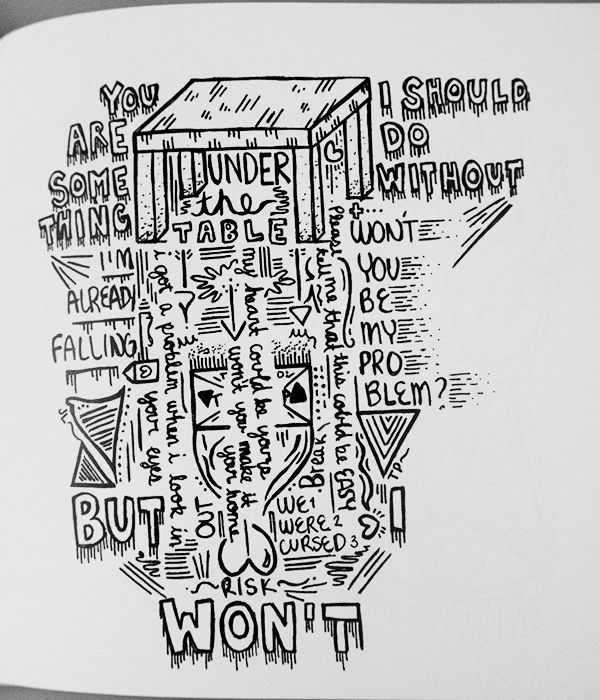 YOU
ARE
SOME
THING
I SHOULD
DO
WITHOUT
UNDER
the
TABLE
I'M
ALREADY
FALLING
i got a problem when i look in
your eyes
my heart could be yours
won't you make it
your home
Please tell me that this could be EASY
WON'T
YOU
BE
MY
PRO
BLEM?
Break
OUT
WE1
WERE2
CURSED3
BUT
I
RISK
WON'T